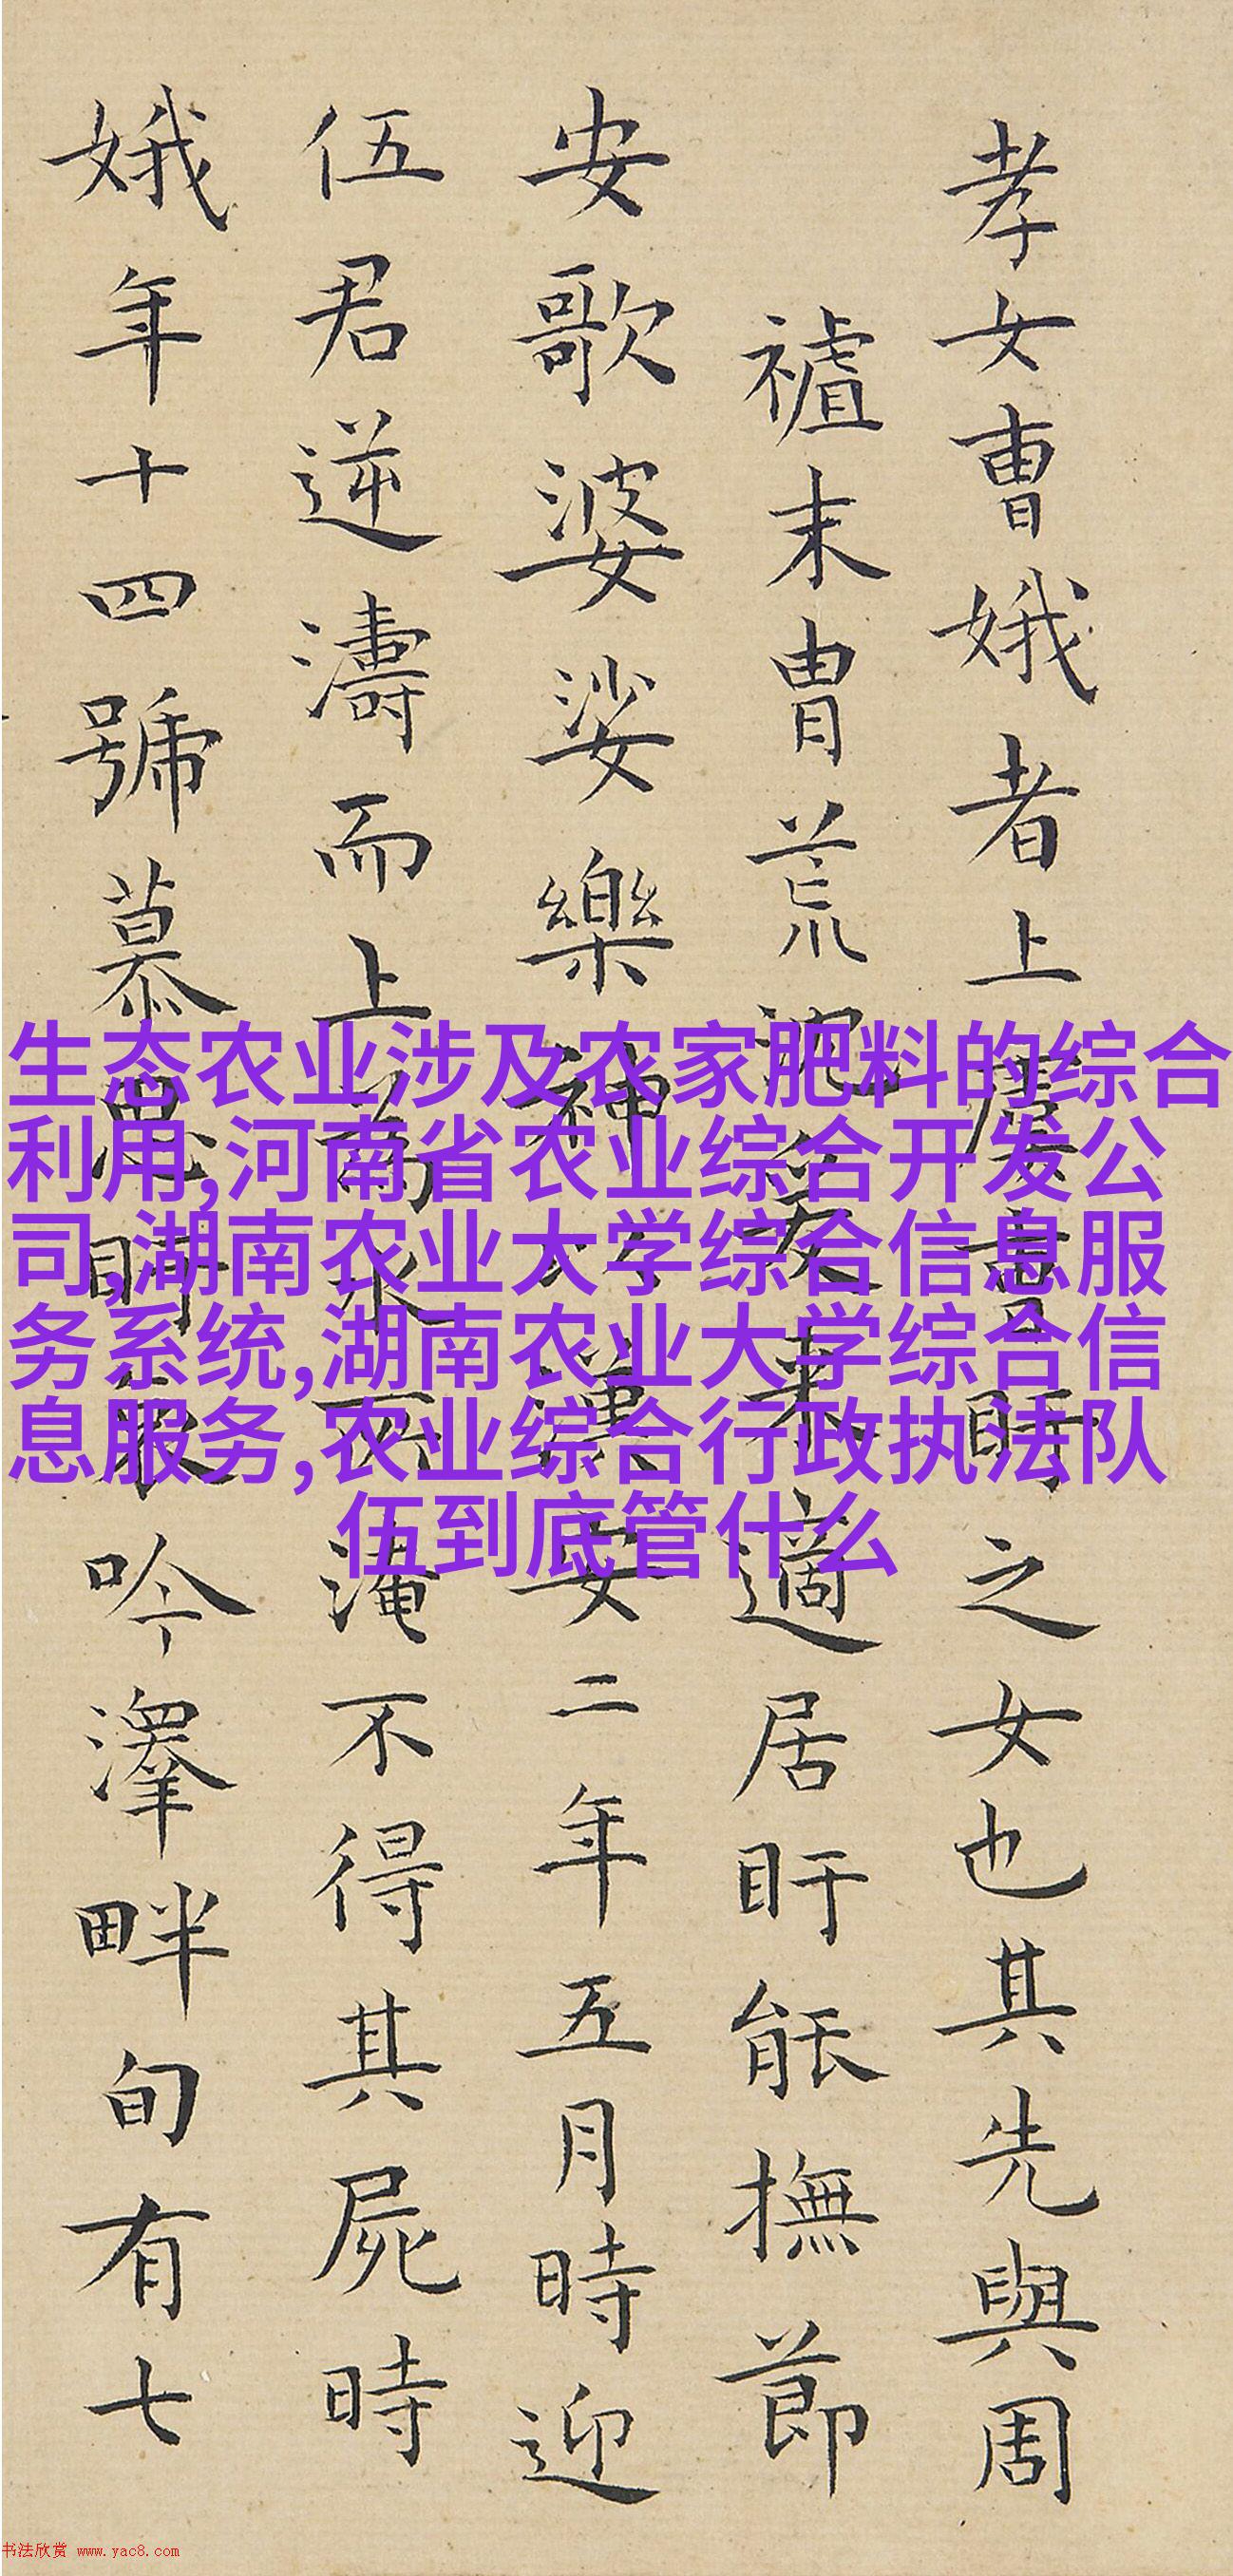 孝女曹娥者上虞曹盱之女也其先與周
禇末胄荒沈爰来適居盱能撫節
安歌婆娑樂神漢安二年五月時迎
伍君逆濤而上為水所淹不得其屍時
娥年十四號慕思盱哀吟澤畔旬有七
生态农业涉及农家肥料的综合
利用,河南省农业综合开发公
司,湖南农业大学综合信息服
务系统,湖南农业大学综合信
息服务,农业综合行政执法队
伍到底管什么
书法欣赏 www.yac8.com